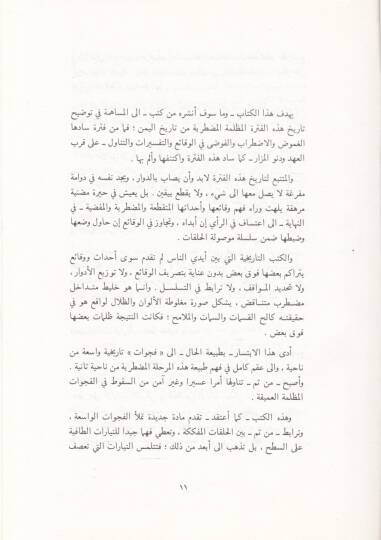 يهدف هذا الكتاب ـ وما سوف أنشره من كتب ـ الى المساهمة في توضيح
تاريخ هذه الفترة المظلمة المضطربة من تاريخ اليمن ؛ فما من فترة سادها
الغموض والاضطراب والفوضى في الوقائع والتفسيرات والتناول ـ على قرب
العهد ودنو المزار ـ كما ساد هذه الفترة واكتنفها وألم بها .
والمتتبع لتاريخ هذه الفترة لابد وأن يصاب بالدوار ، ويجد نفسه في دوامة
مفرغة لا يصل معها الى شيء ، ولا يقطع بيقين . بل يعيش في حيرة مضنية
مرهقة يلهث وراء فهم وقائعها وأحداثها المتقطعة والمضطربة والمفضية ـ في
النهاية ـ الى اعتساف في الرأي إن أبداه ، وتجاوز في الوقائع إن حاول وضعها
وضبطها ضمن سلسلة موصولة الحلقات .
والكتب التاريخية التي بين أيدي الناس لم تقدم سوى أحداث ووقائع
يتراكم بعضها فوق بعض بدون عناية بتصريف الوقائع ، ولا توزيع الأدوار ،
ولا تحديد المواقف ، ولا ترابط في التسلسل . وانما هو خليط متداخل
مضطرب متناقض ، يشكل صورة مغلوطة الألوان والظلال لواقع هو في
حقيقته كالح القسمات والسمات والملامح ؛ فكانت النتيجة ظلمات بعضها
فوق بعض .
أدى هذا الابتسار ـ بطبيعة الحال ـ الى « فجوات » تاريخية واسعة من
ناحية ، والى عقم كامل في فهم طبيعة هذه المرحلة المضطربة من ناحية ثانية .
وأصبح ـ من ثم ـ تناولها أمرا عسيرا وغير آمن من السقوط في الفجوات
المظلمة العميقة .
وهذه الكتب ـ كما أعتقد ـ تقدم مادة جديدة تملأ الفجوات الواسعة ،
وترابط ـ من ثم ـ بين الحلقات المفككة ، وتعطي فهما جيدا للتيارات الطافية
على السطح ، بل تذهب الى أبعد من ذلك ؛ فتتلمس التيارات التي تعصف
١١